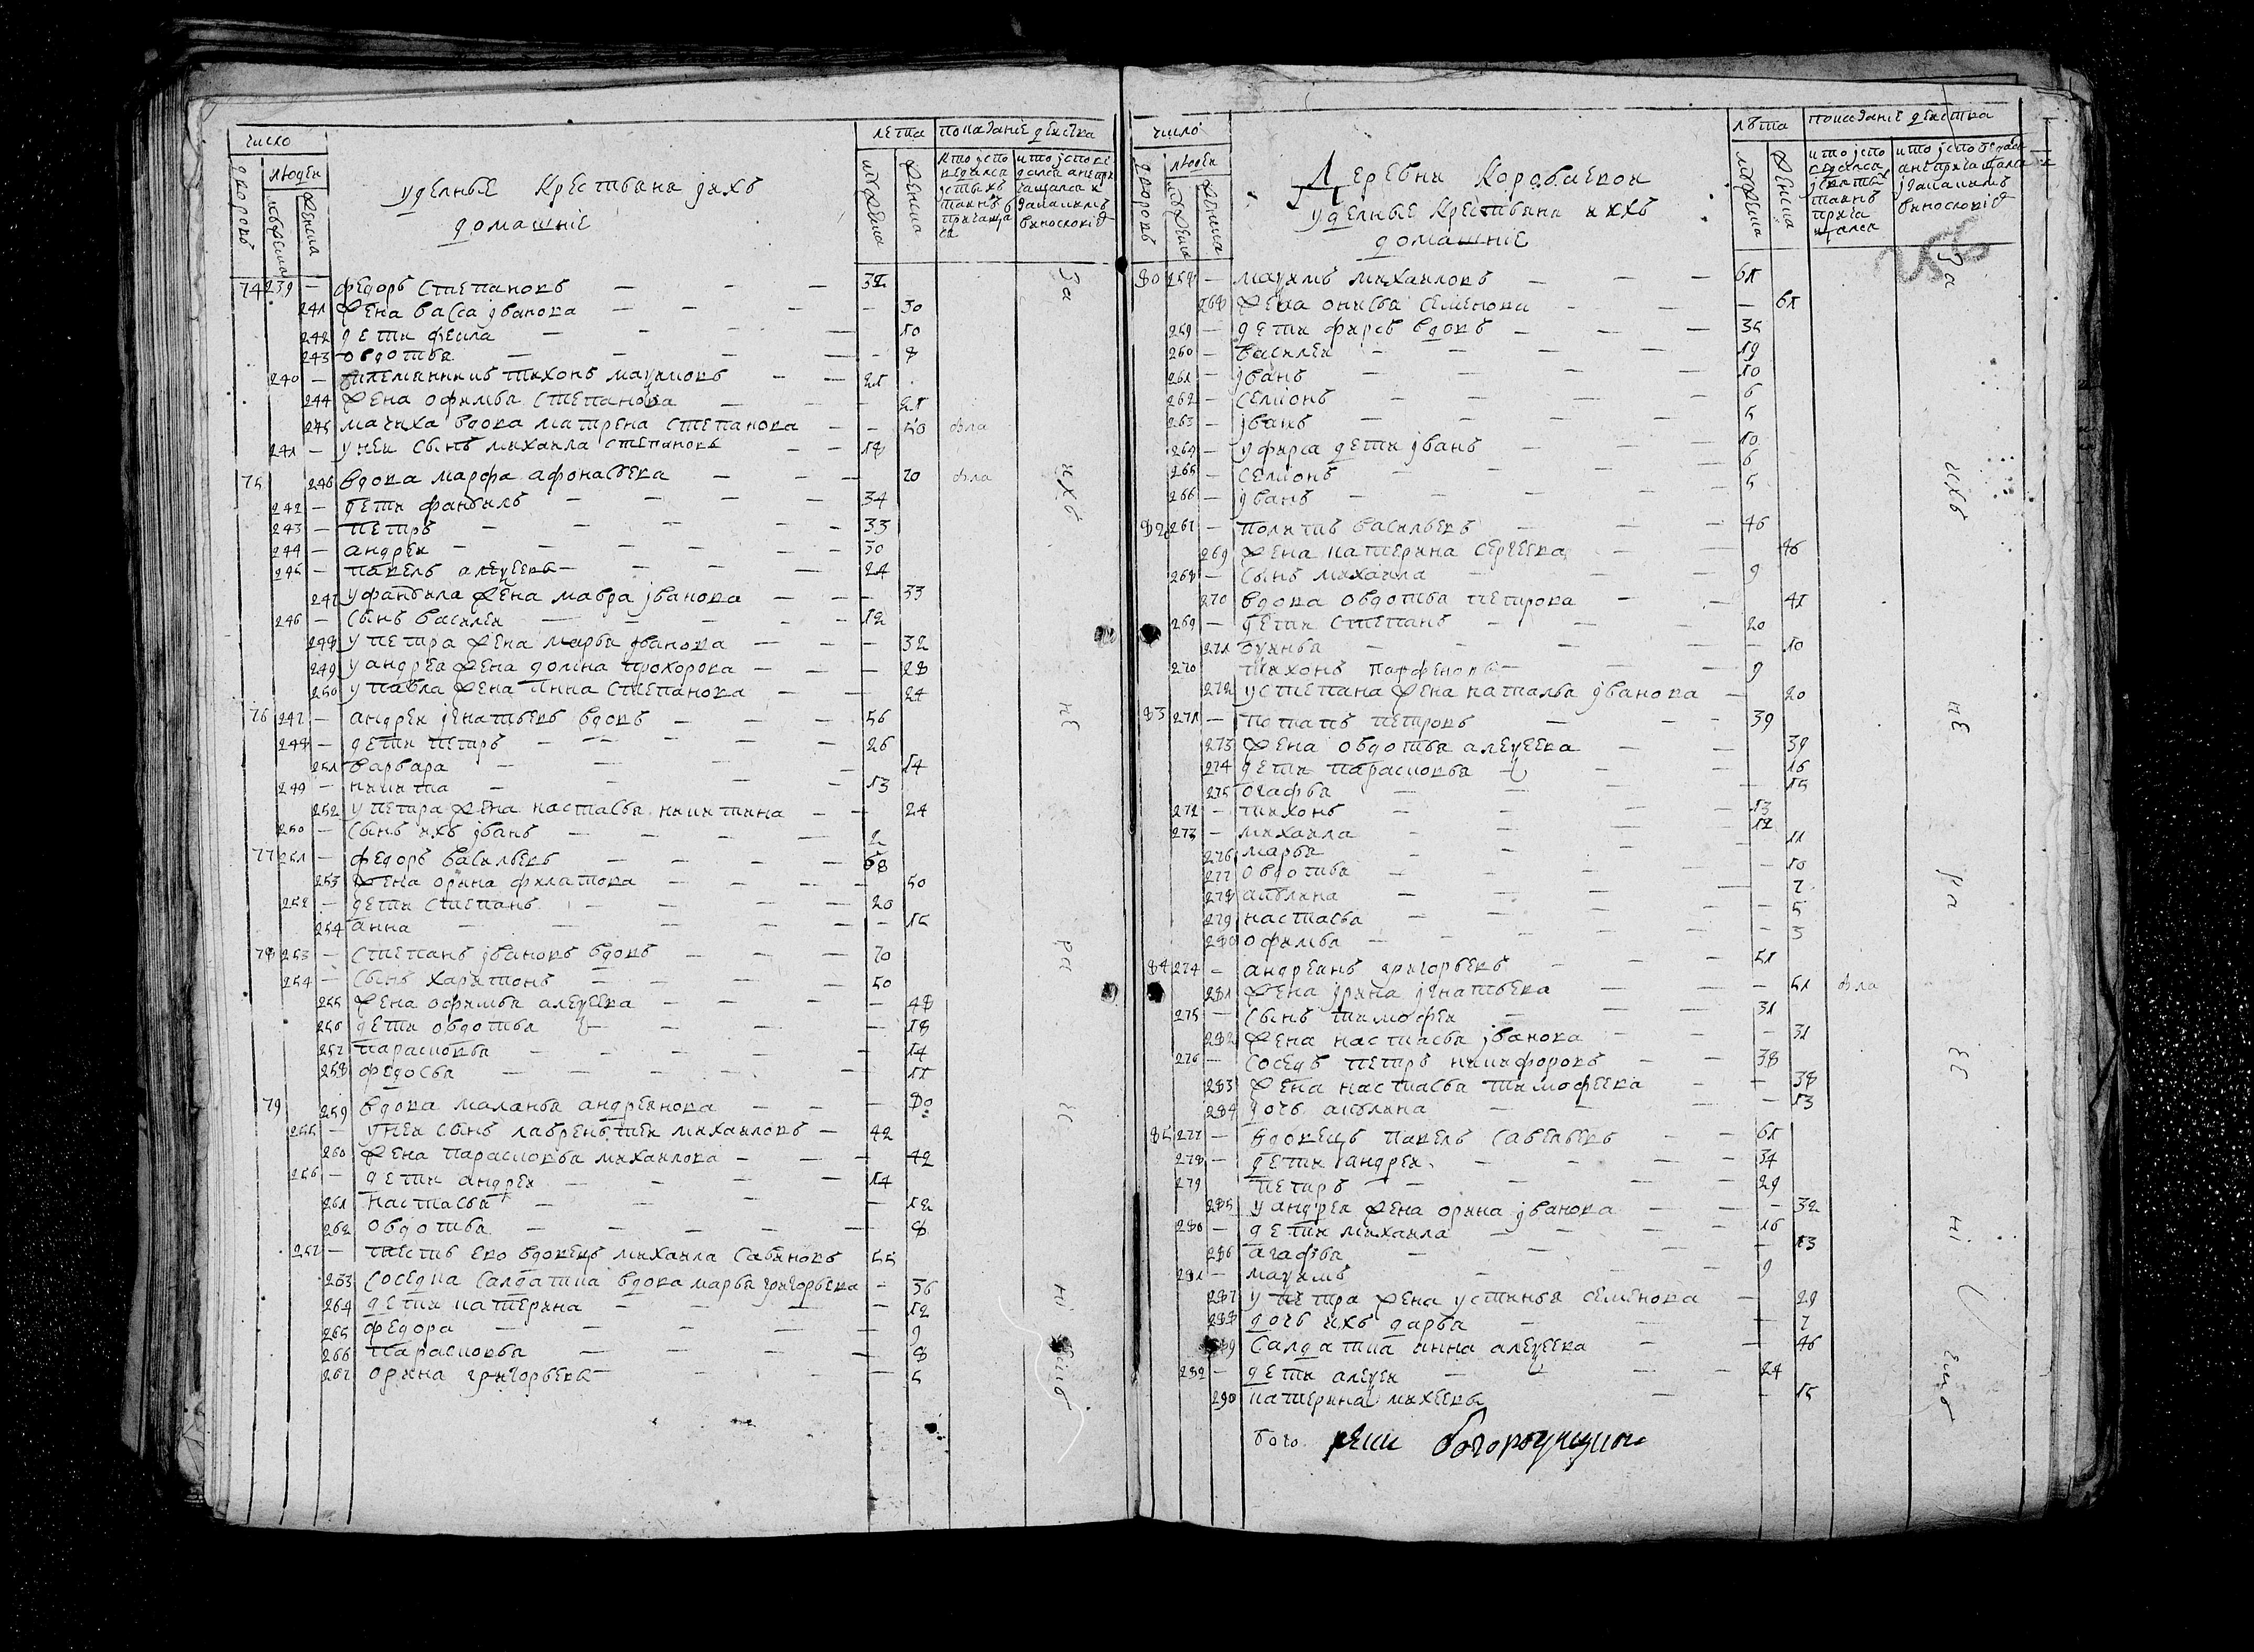 число
лета
показание действа
дворовъ
людеи
мужеска
женска
мужеска
женска
уделные Крестьяна ихъ
домашние
74 239 — федоръ Степановъ — 32
241 жена васса иванова — 30
242 дети фекла — 10
243 овдотья — 8
240 — племянникъ тихонъ макимовъ — 21
244 жена офимья Степанова — 21
245 мачиха вдова матрена Степанова — 50 была
241 — у неи сынъ михаила степановъ — 18
75 246 вдова марфа афонасьева — 70 была
242 — дети фанбилъ — 34
243 — петръ — 33
244 — андреи — 30
245 — павелъ алексеевъ — 24
247 у фанбила жена мавра иванова — 33
246 — сынъ василеи — 12
248 у петра жена марья иванова — 32
249 у андрея жена домна прохорова — 28
250 у павла жена анна Степанова — 24
76 247 — андреи игнатьевъ вдовъ — 56
248 — дети петръ — 26
251 варвара — 14
249 — никита — 13
252 у петра жена настасья никитина — 24
250 — сынъ ихъ иванъ — 2
77 251 — федоръ васильевъ — 68
253 жена орина филатова — 50
252 — дети степанъ — 20
254 анна — 15
78 253 — степанъ ивановъ вдовъ — 70
254 — сынъ харитонъ — 50
255 жена офимья алексеева — 48
256 дети овдотья — 18
257 парасковья — 14
258 федосья — 11
79 259 вдова маланья андреянова — 80
255 — у неи сынъ лаврентеи михаиловъ — 42
260 жена парасковья михаилова — 42
256 — дети андреи — 14
261 настасья — 12
262 овдотья — 8
257 — тесть ево вдовецъ михаила савиновъ 55
263 соседка салдатка вдова марья григорьева — 36
264 дети катерина — 12
265 федора — 9
266 парасковья — 8
267 орина григорьева — 5
число
лѣта
показание действа
дворовъ
людеи
мужеска
женска
мужеска
женска
Деревни Коробаевои
уделные крестьяна и ихъ
домашние
80 258 — макимъ михаиловъ — 61
268 жена онисья семенова — 61
259 — дети фирсъ вдовъ — 35
260 — василеи — 19
261 — иванъ — 10
262 — семионъ — 6
263 — иванъ — 5
264 — у фирса дети иванъ — 10
265 — семионъ — 6
266 — иванъ — 5
82 267 — политъ васильевъ — 46
269 жена катерина сергеева — 46
268 — сынъ михаила — 9
270 вдова овдотья петрова — 41
269 — дети степанъ — 20
271 — 10
270 тихонъ парфеновъ — 9
272 у степана жена наталья иванова — 20
83 271 — потапъ петровъ — 39
273 жена овдотья алексеева — 39
274 дети парасковья — 16
275 огафья — 15
272 — тихонъ — 13
273 — михаила — 12
276 марья — 11
277 овдотья — 10
278 акулина — 7
279 настасья — 5
280 офимья — 3
84 274 — андреянъ григорьевъ — 51
281 жена ирина игнатьева — 51 была
275 — сынъ тимофеи — 31
282 жена настасья иванова — 31
276 — соседъ петръ никифоровъ — 38
283 жена настасья тимофеева — 38
284 дочь акулина — 13
85 277 — вдовецъ павелъ савельевъ — 61
278 — дети андреи — 34
279 петръ — 29
285 у андрея жена орина иванова — 32
280 — дети михаила — 16
286 агафья — 13
281 — макимъ — 9
287 у петра жена устинья семенова — 29
288 дочь ихъ дарья — 7
289 салдатка анна алексеева — 46
282 — дети алексеи — 24
290 катерина михеева — 15
бого. рски богородицкои